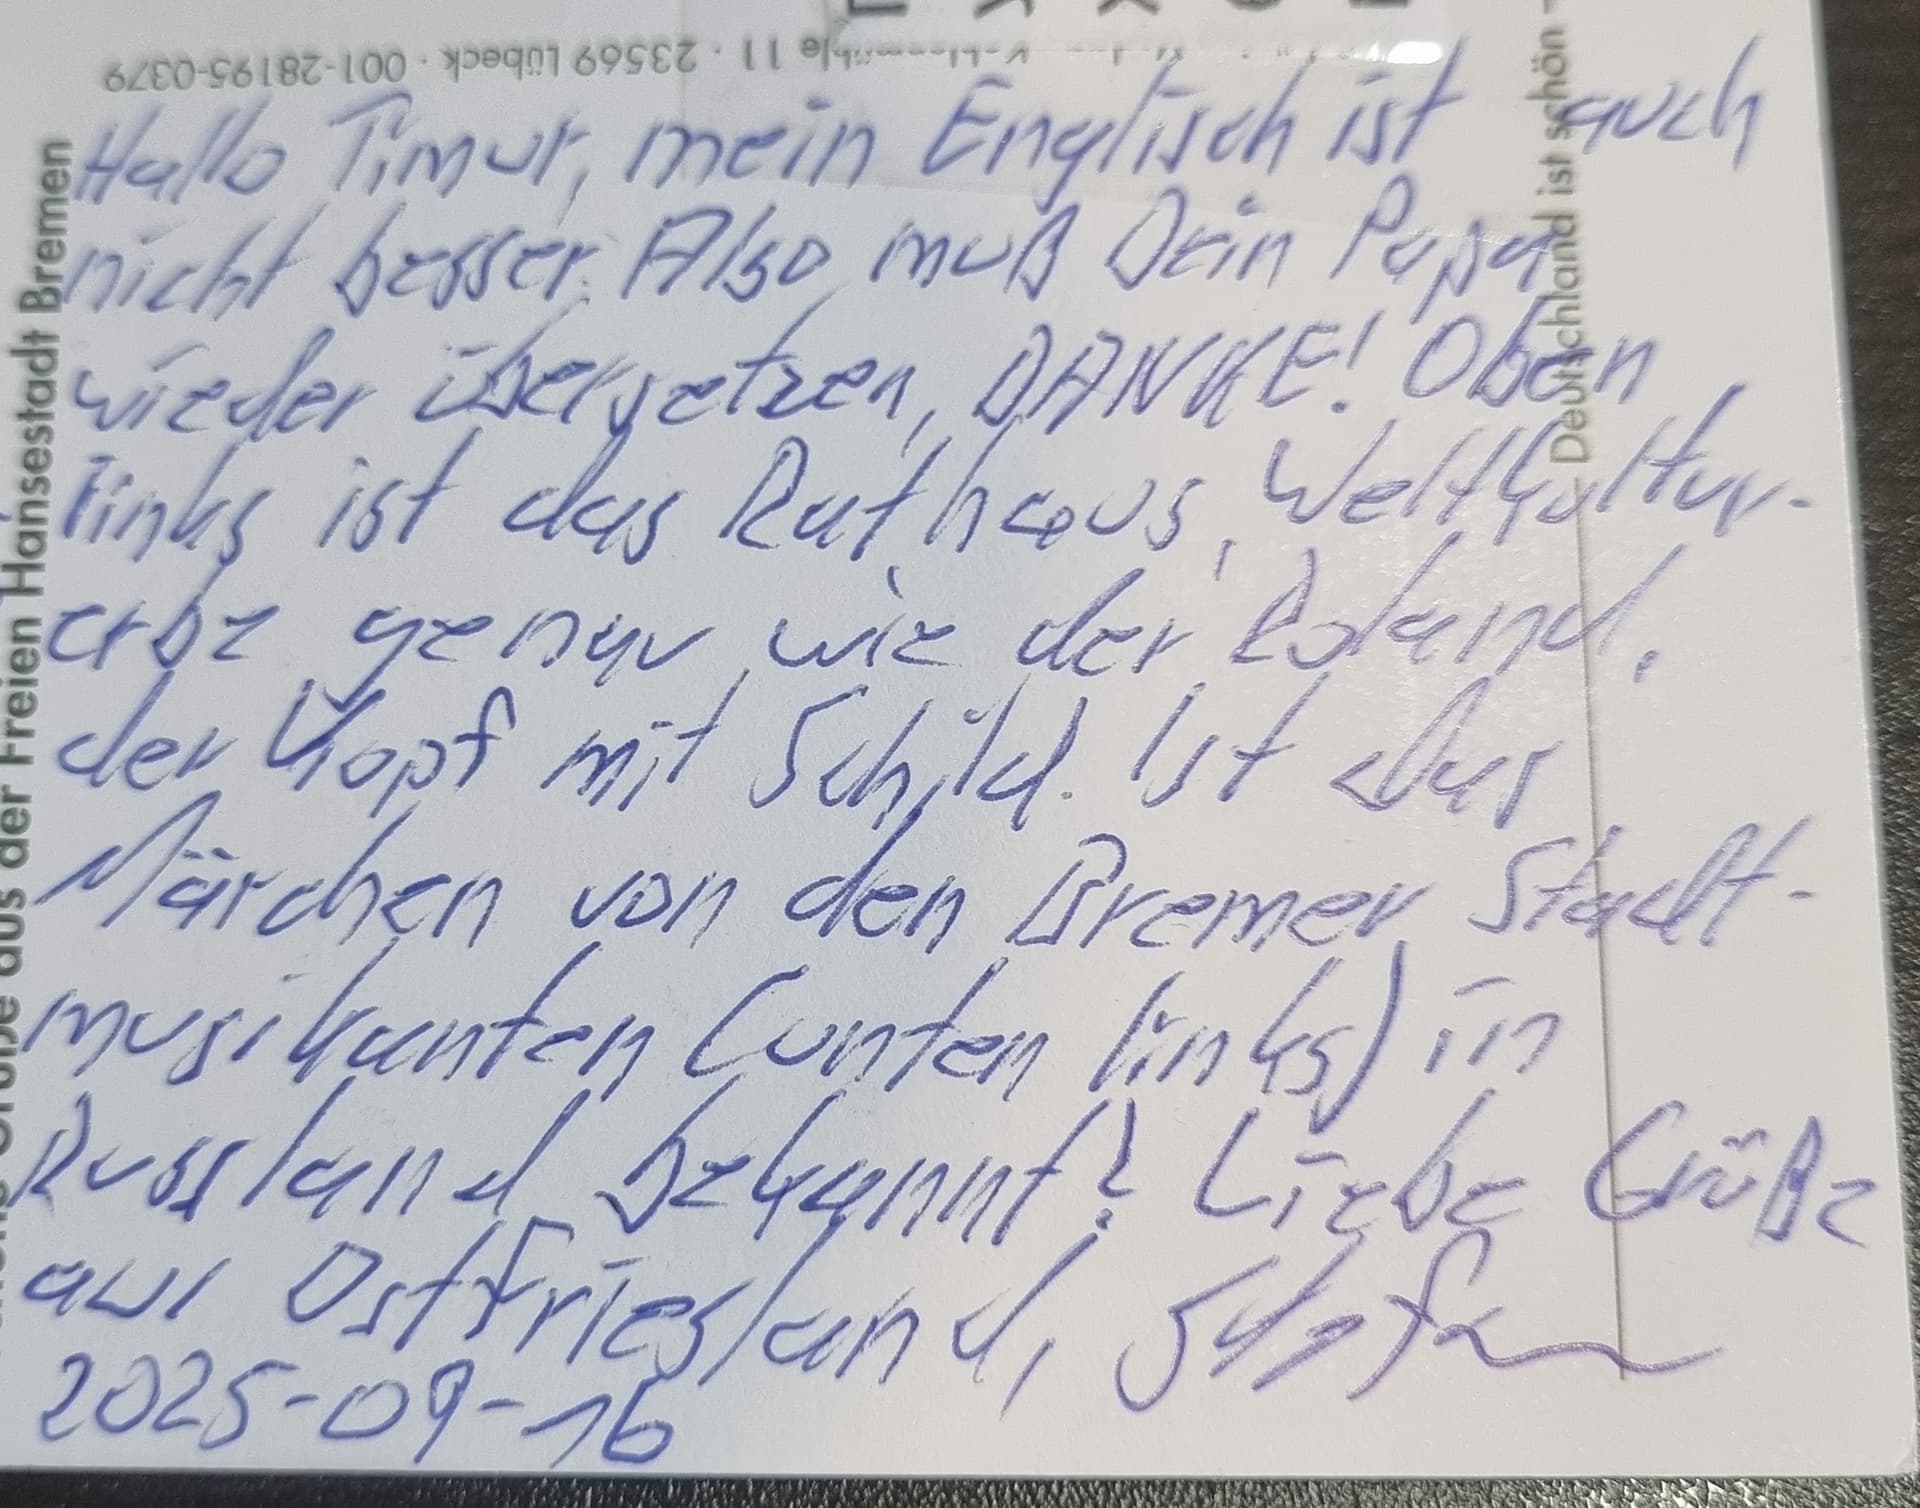 23569 Lübeck · 001-28195-0379
Hallo Timur, mein Englisch ist auch
nicht besser. Also muß Dein Papa
wieder übersetzen, DANKE! Oben
links ist das Rathaus, Weltkultur-
erbe genau wie der Roland,
der Kopf mit Schild. Ist das
Märchen von den Bremer Stadt-
musikanten (unten links) in
Russland bekannt? Liebe Grüße
aus Ostfriesland,
2025-09-16
aus der Freien Hansestadt Bremen
Deutschland ist schön